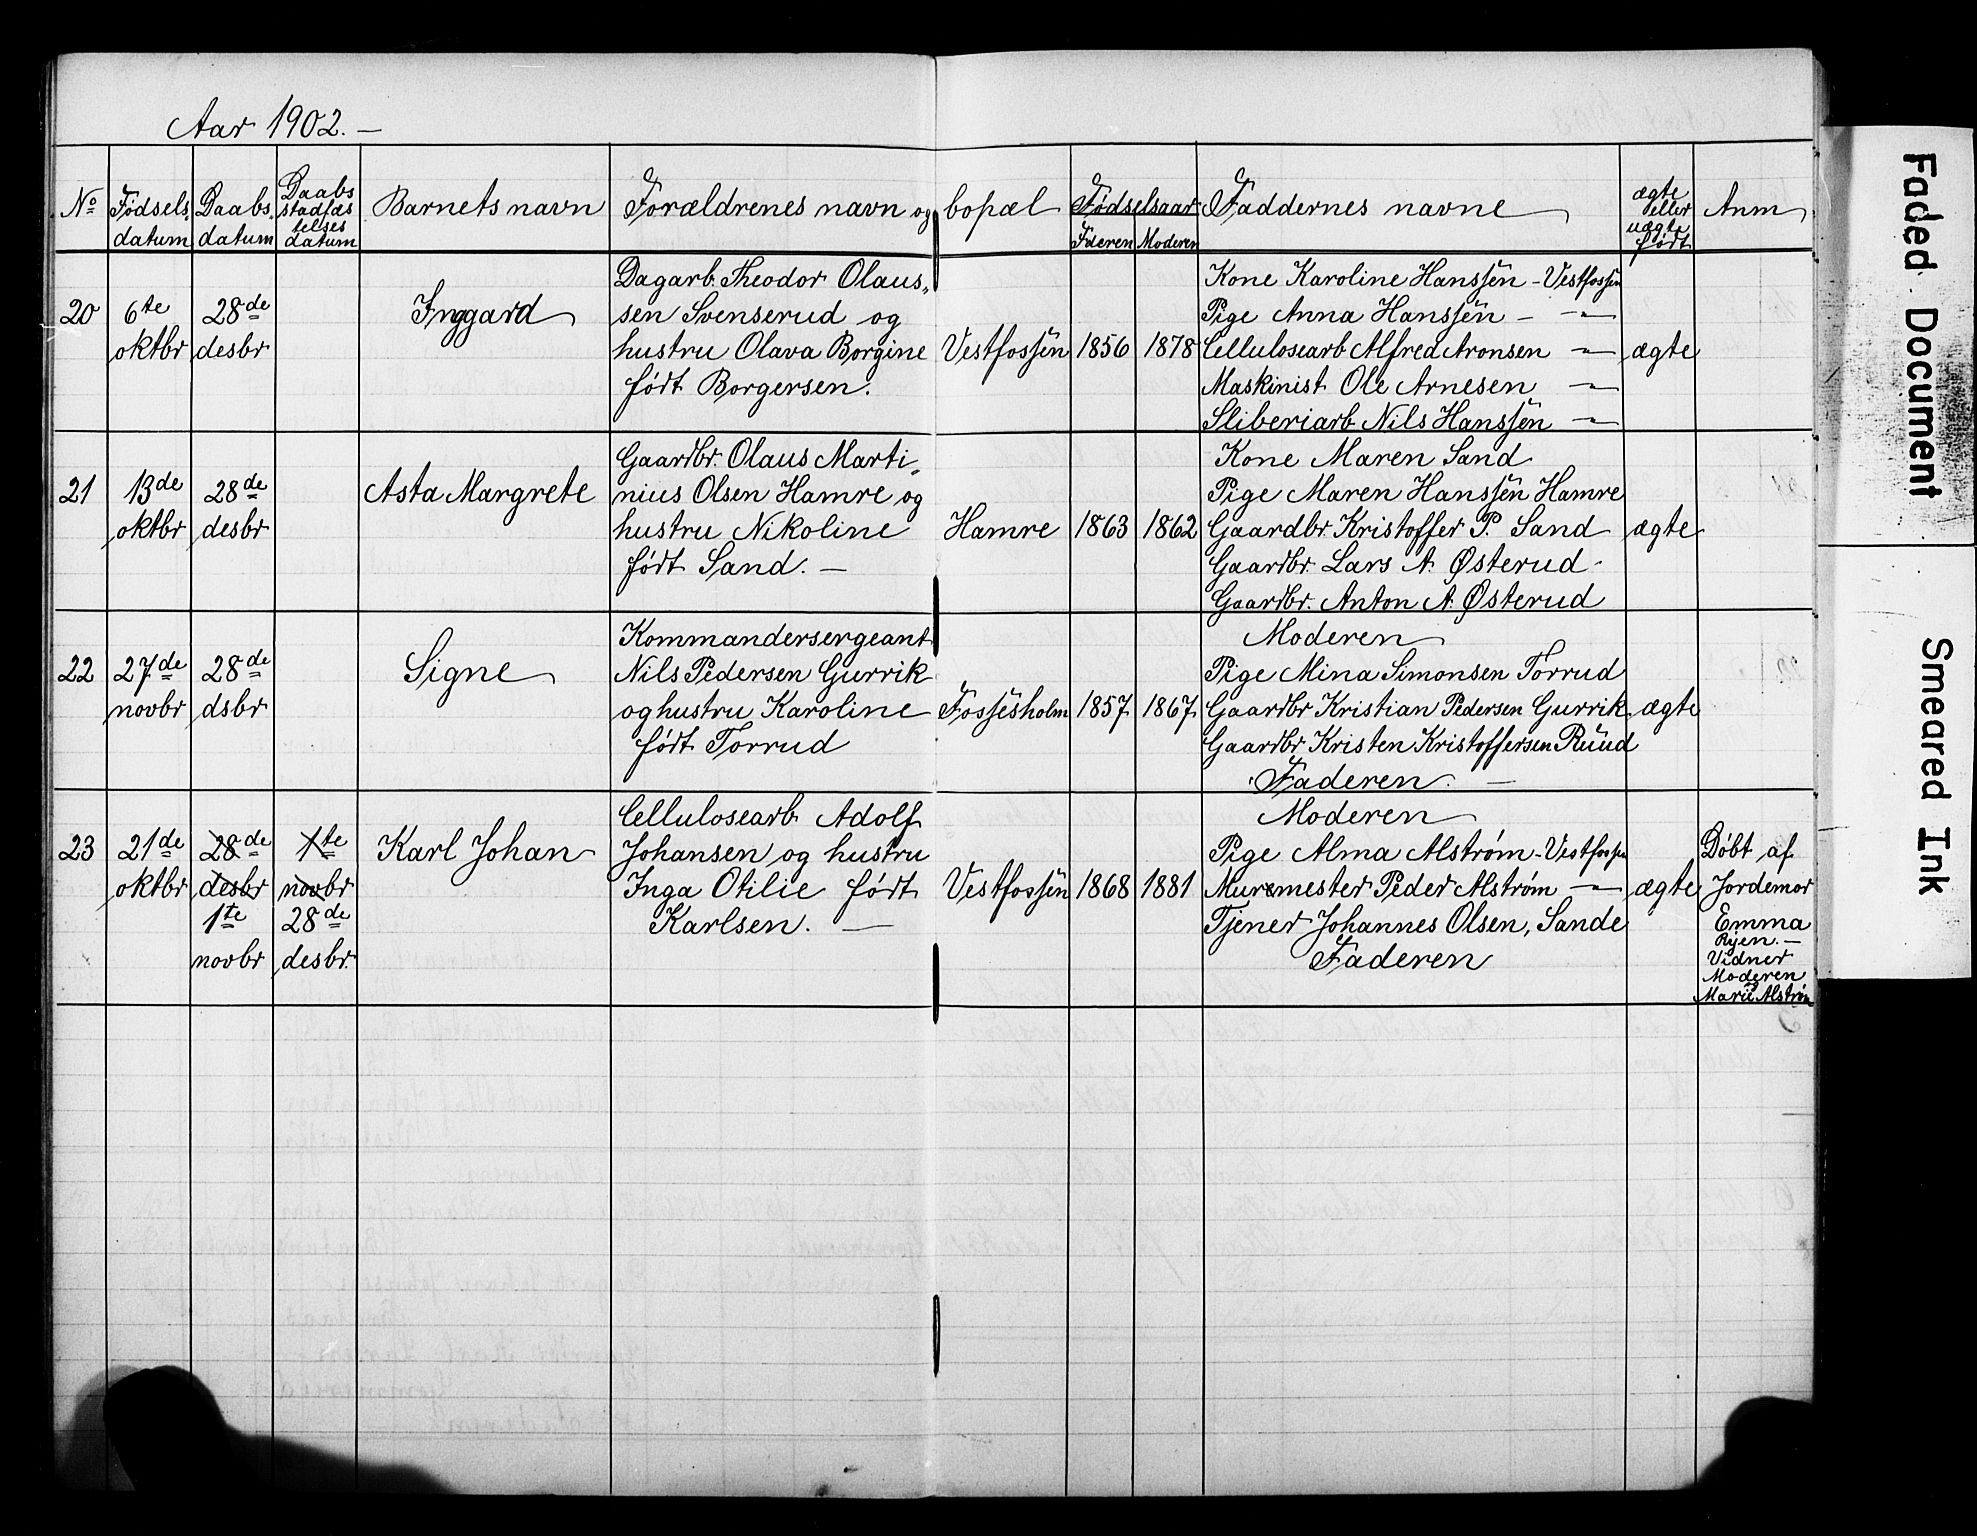 Aar 1902. —
No Fødsels datum Daabs datum Daabs stadfæs telses datum Barnets navn Forældrenes navn og bopæl Fødselsaar Faderen Moderen Faddernes navne ægte eller uægte født Anm
20
6te
oktbr
28de
desbr
Inggard
Dagarb. Theodor Olaus„
sen Svenserud og
hustru Olava Borgine
født Borgersen.
Vestfossen
1856
1878
Kone Karoline Hanssen - Vestfossen
Pige Anna Hanssen - —"—
Cellulosearb Alfred Aronsen —"—
Maskinist Ole Arnesen —"—
Sliberiarb Nils Hanssen —"—
ægte
21
13de
oktbr
28de
desbr
Asta Margrete
Gaardbr. Olaus Marti„
nius Olsen Hamre og
hustru Nikoline
født Sand. —
Hamre
1863
1862
Kone Maren Sand
Pige Maren Hanssen Hamre
Gaardbr. Kristoffer P. Sand
Gaardbr. Lars A. Østerud -
Gaardbr. Anton A. Østerud
ægte
22
27de
novbr
28de
dsbr
Signe
Kommandersergeant
Nils Pedersen Gurrik
og hustru Karoline
født Torrud
Fossesholm
1857
1867
Moderen
Pige Mina Simonsen Torrud
Gaardbr Kristian Pedersen Gurrik
Gaardbr Kristen Kristoffersen Ruud
Faderen. —
ægte
23
21de
oktbr
28de
desbr
1te
novbr
1te
novbr
28de
desbr.
Karl Johan
Cellulosearb Adolf
Johansen og hustru
Inga Otilie født
Karlsen. —
Vestfossen
1868
1881
Moderen
Pige Alma Alstrøm - Vestfossen
Murmester Peder Alstrøm —"—
Tjener Johannes Olsen, Sande
Faderen
ægte
Døbt af
Jordemor
Emma
Ryen. —
Vidner
Moderen
Marie Alstrøm
Faded Document
Smeared Ink